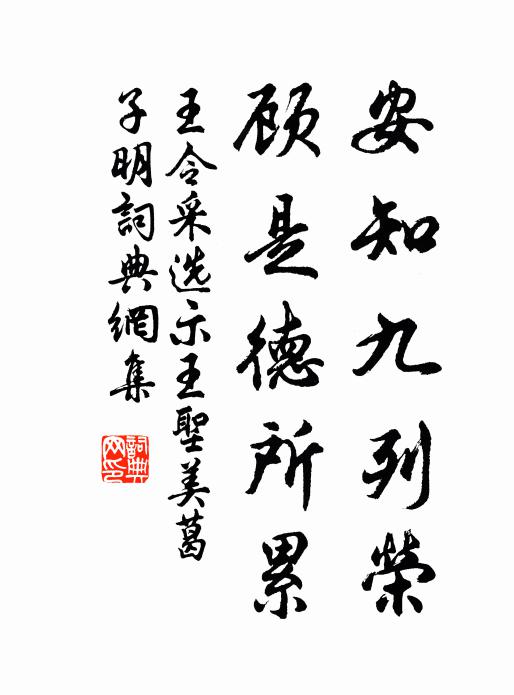 安知九列榮
顾是德所累
王令采选示王聖美葛
子明詞典網集
詞典网印